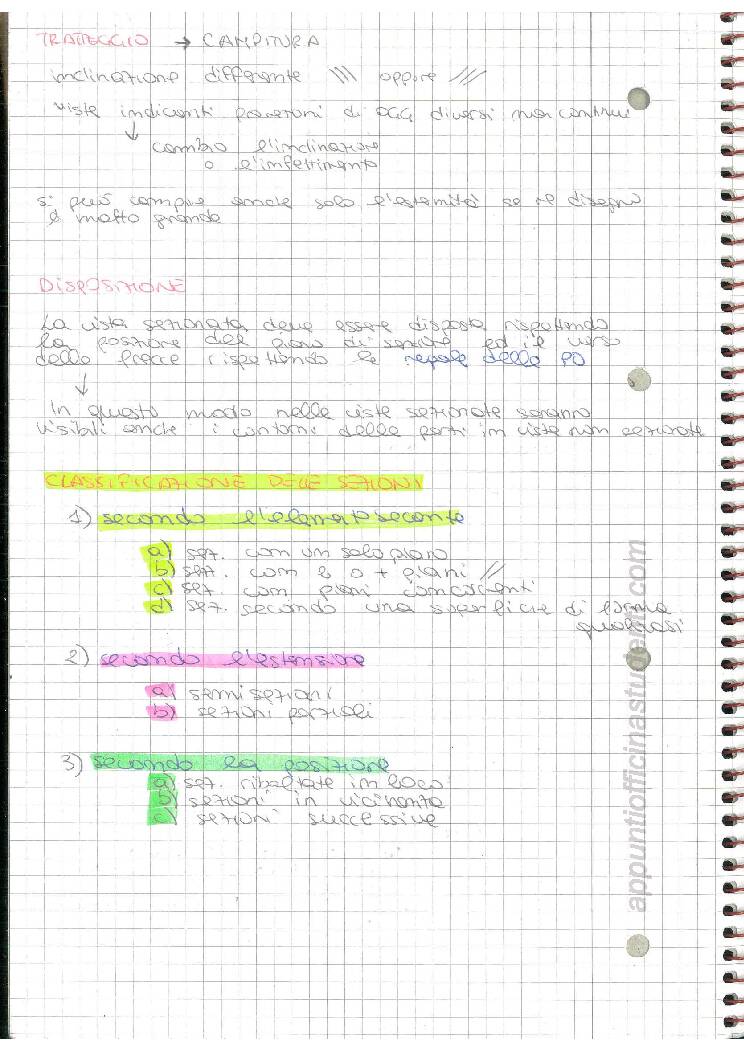 TRATTEGGIO → CAMPITURA
inclinazione differente \\\ oppure ///
viste indicanti posizioni di OGG diversi ma continui
↓ cambio l'inclinazione
o l'infittimento
si può compire anche solo l'estremità se il disegno
è molto grande
DISPOSIZIONE
La vista sezionata deve essere disposta rispettando
la posizione del piano di sezione ed il verso
delle frecce rispettando le regole delle PO
↓
In questo modo nelle viste sezionate saranno
visibili anche i contorni delle parti in viste non sezionate
CLASSIFICAZIONE DELLE SEZIONI
1) secondo l'elemento secante
a) sez. con un solo piano
b) sez. con 2 o + piani //
c) sez. con piani concorrenti
d) sez. secondo una superficie di forma
qualsiasi
2) secondo l'estensione
a) semisezioni
b) sezioni parziali
3) secondo la posizione
a) sez. ribaltate in loco
b) sezioni in vicinanza
c) sezioni successive
appuntiofficinastudenti.com